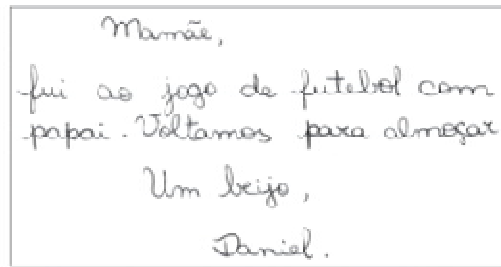 Mamãe,
fui ao jogo de futebol com
papai. Voltamos para almoçar
Um beijo,
Daniel.